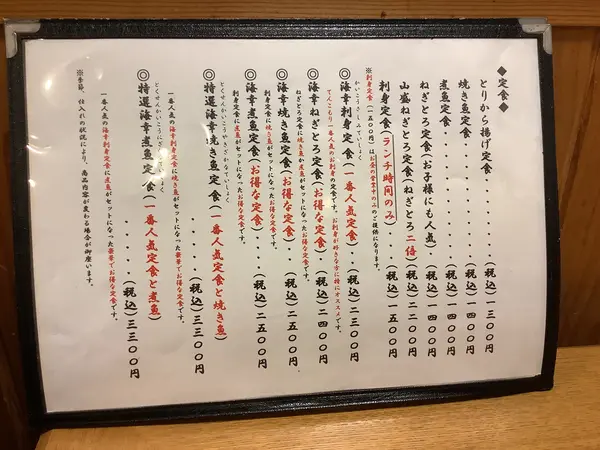 ◆定食◆
とりから揚げ定食・・・・・・・・・(税込)一三〇〇円
焼き魚定食・・・・・・・・・・・・(税込)一四〇〇円
煮魚定食・・・・・・・・・・・・・(税込)一四〇〇円
ねぎとろ定食(お子様にも人気)・・(税込)一四〇〇円
山盛ねぎとろ定食(ねぎとろ二倍)(税込)二二〇〇円
刺身定食(ランチ時間のみ)・・・・(税込)一五〇〇円
※刺身定食(一五〇〇円)はお昼の営業中のみのご提供になります。
かいこうさしみていしょく
◎海幸刺身定食(一番人気定食)・・(税込)二三〇〇円
てんこもり!一番人気のお刺身の定食です。お刺身が好きな方に特にオススメです。
◎海幸ねぎとろ定食(お得な定食)・(税込)二四〇〇円
ねぎとろ定食に焼き魚か煮魚がセットになったお得な定食です。
◎海幸焼き魚定食(お得な定食)・・(税込)二五〇〇円
刺身定食に焼き魚がセットになったお得な定食です。
◎海幸煮魚定食(お得な定食)・・・(税込)二五〇〇円
刺身定食に煮魚がセットになったお得な定食です。
とくせんかいこうやきざかなていしょく
◎特選海幸焼き魚定食(一番人気定食と焼き魚)
・・・・・(税込)三三〇〇円
一番人気の海幸刺身定食に焼き魚がセットになった豪華でお得な定食です。
とくせんかいこうにざかなていしょく
◎特選海幸煮魚定食(一番人気定食と煮魚)
・・・・・(税込)三三〇〇円
一番人気の海幸刺身定食に煮魚がセットになった豪華でお得な定食です。
※季節、仕入れの状況により、商品内容が変わる場合が御座います。